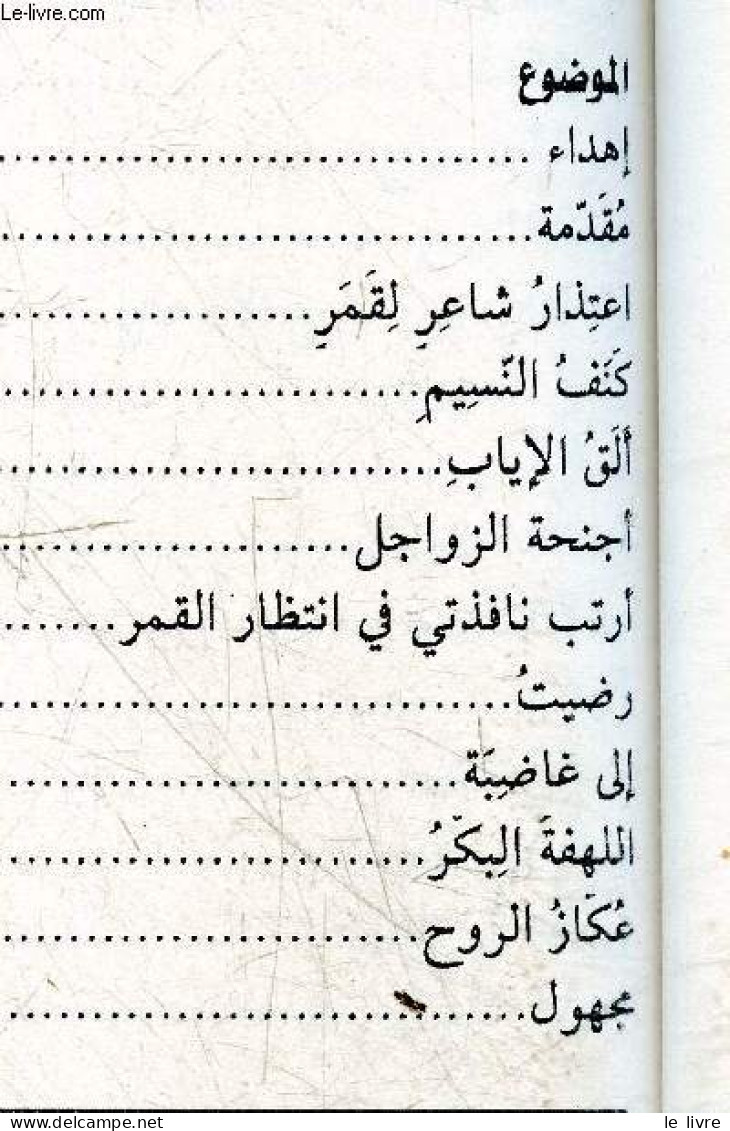 Le-livre.com
الموضوع
إهداء ................................
مُقَدّمة ................................
اعتِذارُ شاعِرٍ لِقَمَرٍ ...................
كَنَفُ النّسِيمِ ..........................
أَلَقُ الإيابِ ..........................
أجنحة الزواجل .....................
أرتب نافذتي في انتظار القمر .......
رضيتُ ..............................
إلى غاضِبَة ..........................
اللهفةَ البِكْرُ .........................
عُكّازُ الروح .........................
مجهول ..............................
www.delcampe.net
le livre